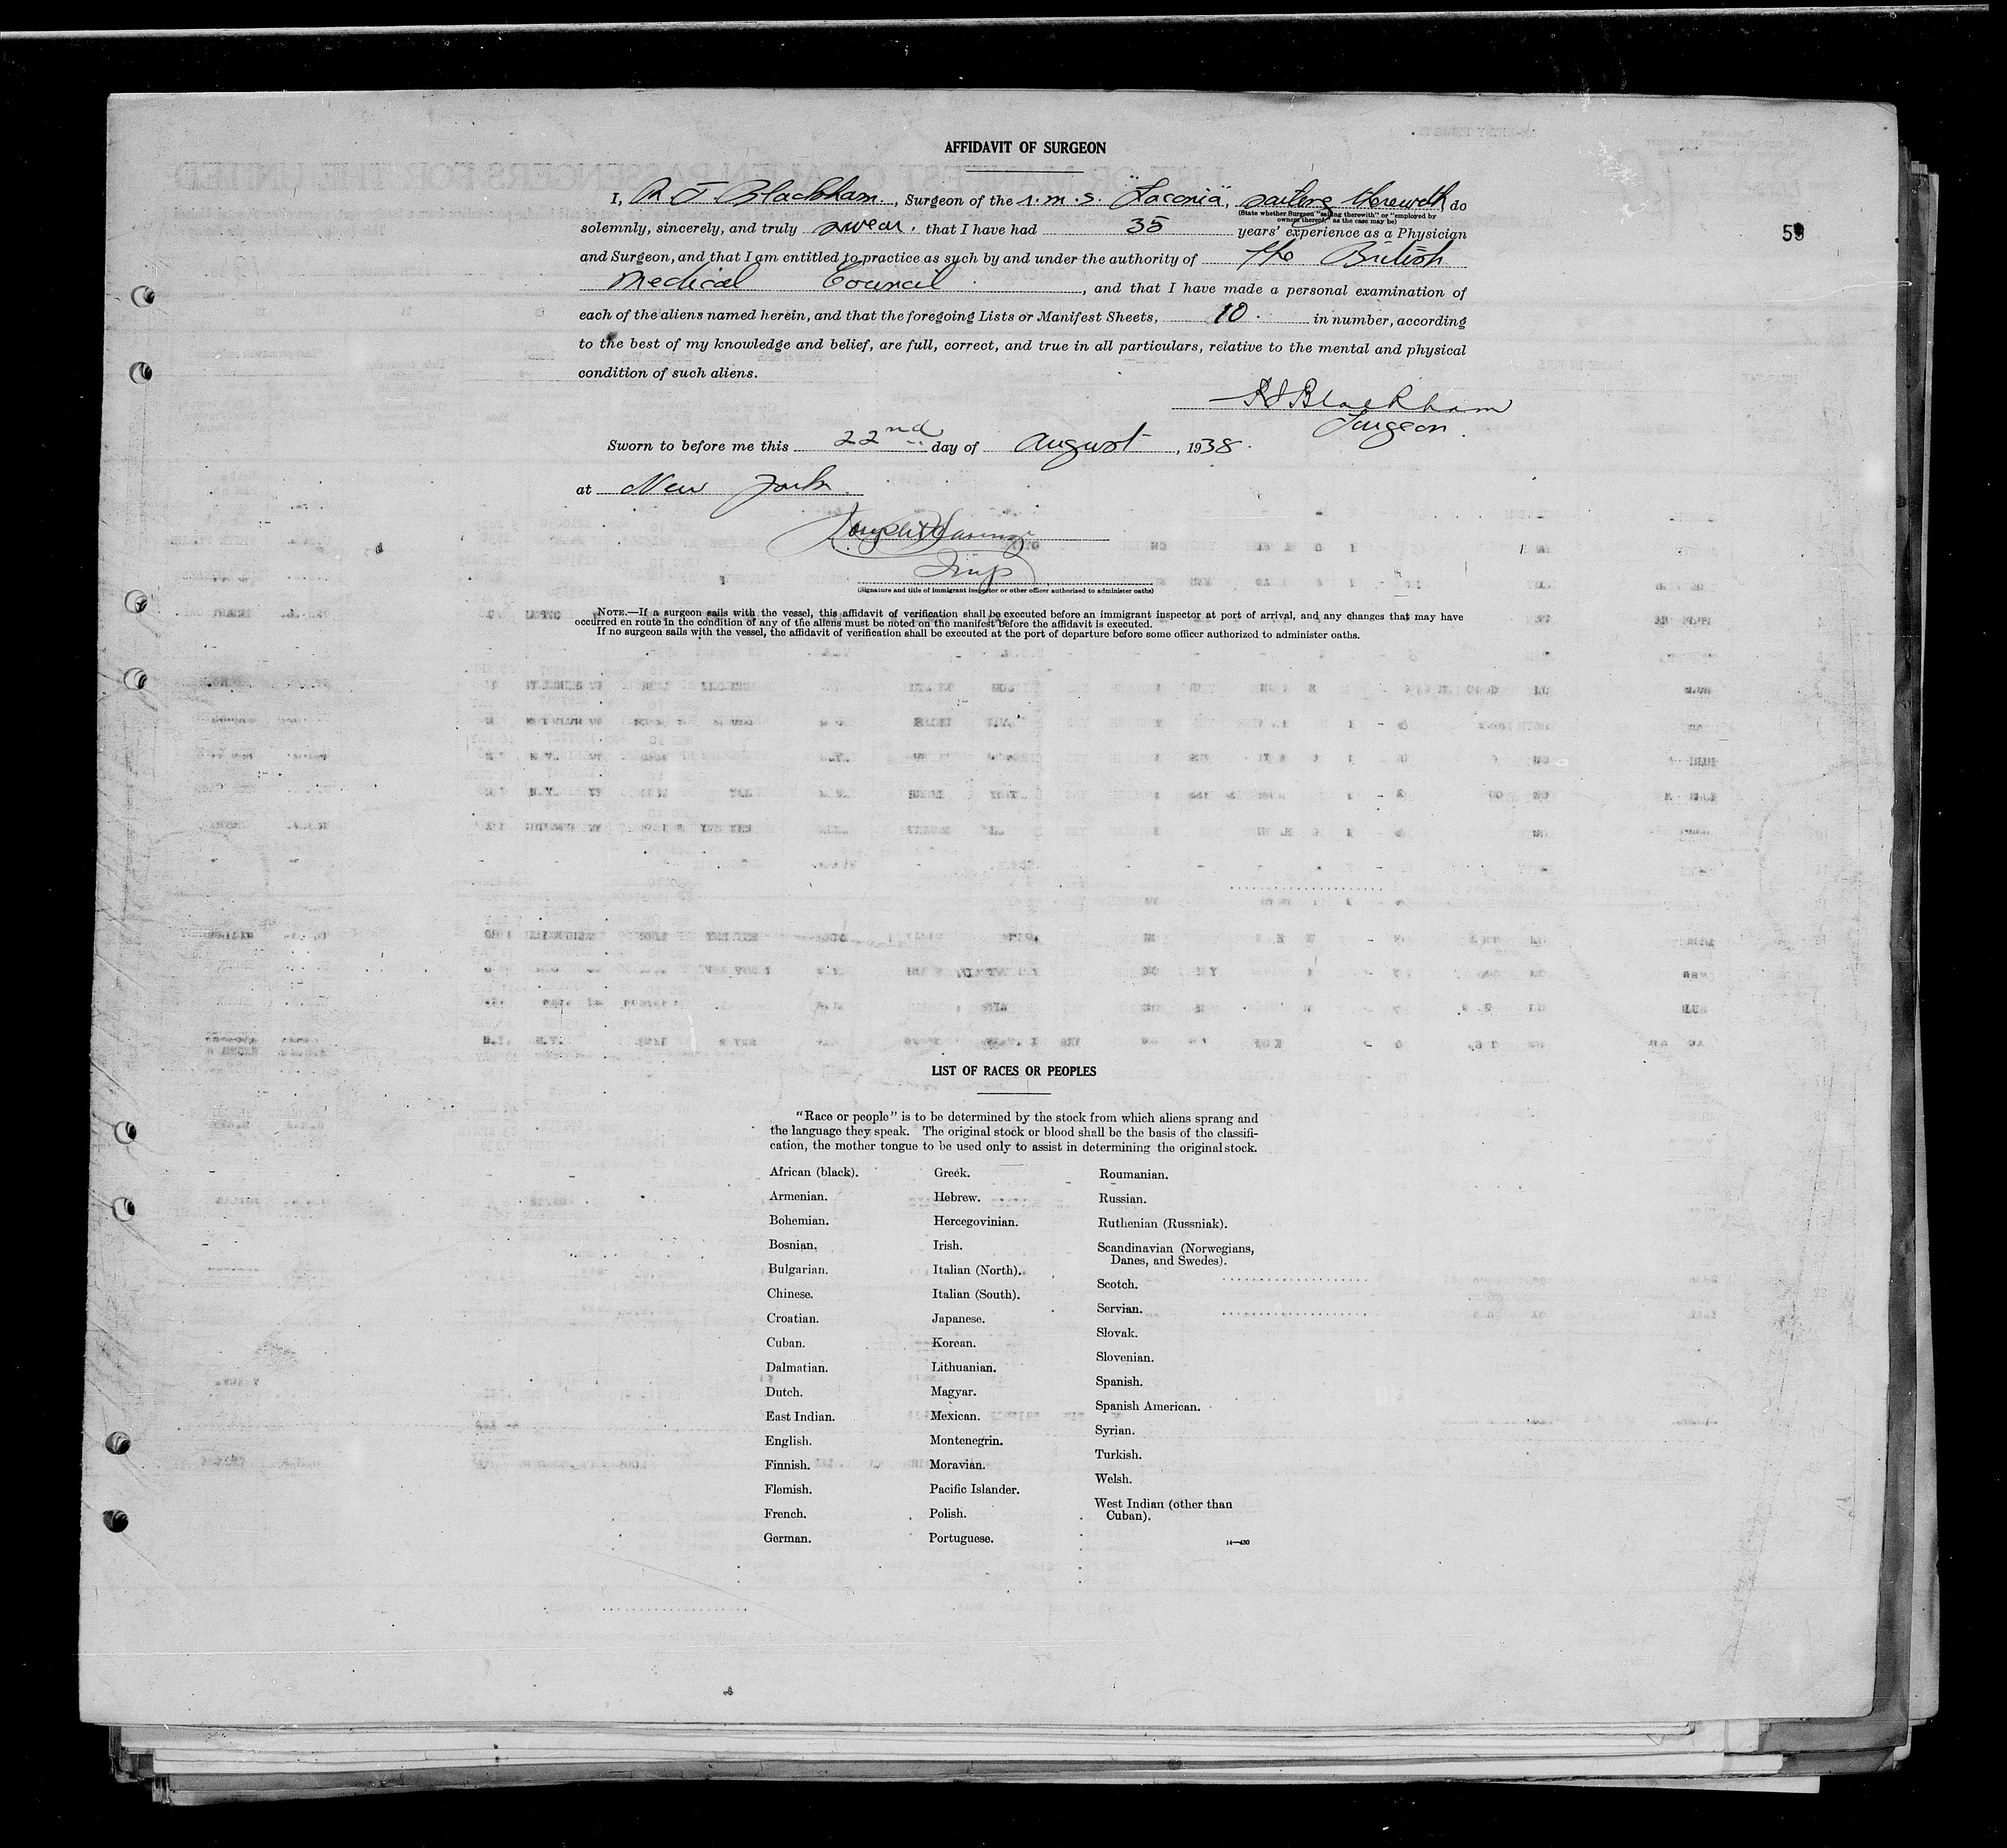 AFFIDAVIT OF SURGEON
I, R J Blackham, Surgeon of the s.m.s. "Laconia", sailing therewith do
(State whether Surgeon "sailing therewith" or "employed by
owners thereof," as the case may be)
solemnly, sincerely, and truly swear, that I have had 35 years' experience as a Physician
59
and Surgeon, and that I am entitled to practice as such by and under the authority of the British
Medical Council, and that I have made a personal examination of
each of the aliens named herein, and that the foregoing Lists or Manifest Sheets, 10 in number, according
to the best of my knowledge and belief, are full, correct, and true in all particulars, relative to the mental and physical
condition of such aliens.
RJ Blackham
Surgeon.
Sworn to before me this 22nd day of August, 1938.
at New York
Insp
(Signature and title of immigrant inspector or other officer authorized to administer oaths)
NOTE.—If a surgeon sails with the vessel, this affidavit of verification shall be executed before an immigrant inspector at port of arrival, and any changes that may have
occurred en route in the condition of any of the aliens must be noted on the manifest before the affidavit is executed.
If no surgeon sails with the vessel, the affidavit of verification shall be executed at the port of departure before some officer authorized to administer oaths.
LIST OF RACES OR PEOPLES
"Race or people" is to be determined by the stock from which aliens sprang and
the language they speak. The original stock or blood shall be the basis of the classifi-
cation, the mother tongue to be used only to assist in determining the original stock.
African (black).
Armenian.
Bohemian.
Bosnian.
Bulgarian.
Chinese.
Croatian.
Cuban.
Dalmatian.
Dutch.
East Indian.
English.
Finnish.
Flemish.
French.
German.
Greek.
Hebrew.
Hercegovinian.
Irish.
Italian (North).
Italian (South).
Japanese.
Korean.
Lithuanian.
Magyar.
Mexican.
Montenegrin.
Moravian.
Pacific Islander.
Polish.
Portuguese.
Roumanian.
Russian.
Ruthenian (Russniak).
Scandinavian (Norwegians,
Danes, and Swedes).
Scotch.
Servian.
Slovak.
Slovenian.
Spanish.
Spanish American.
Syrian.
Turkish.
Welsh.
West Indian (other than
Cuban).
14—430